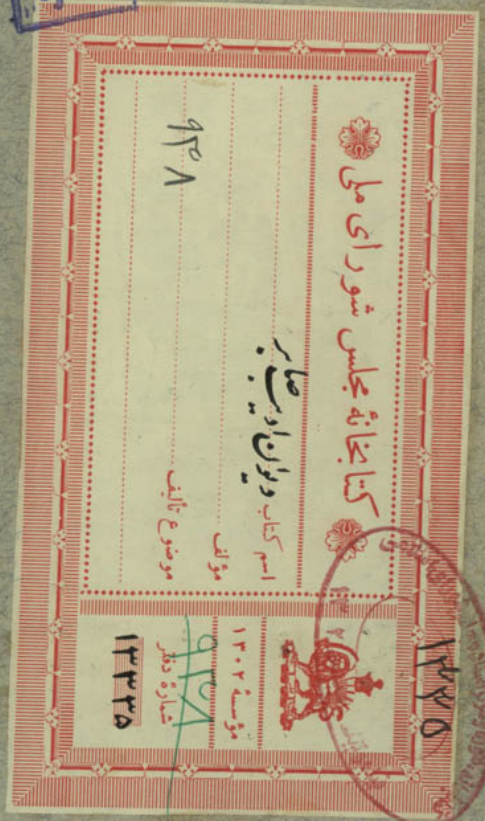 کتابخانهٔ مجلس شورای ملی
اسم کتاب دیوان ادیب صابر
مؤلف
موضوع تألیف
۹۳۰۸
مؤسسهٔ ۱۳۰۲
شمارهٔ دفتر
۹۳۰۸
۱۳۳۳۵